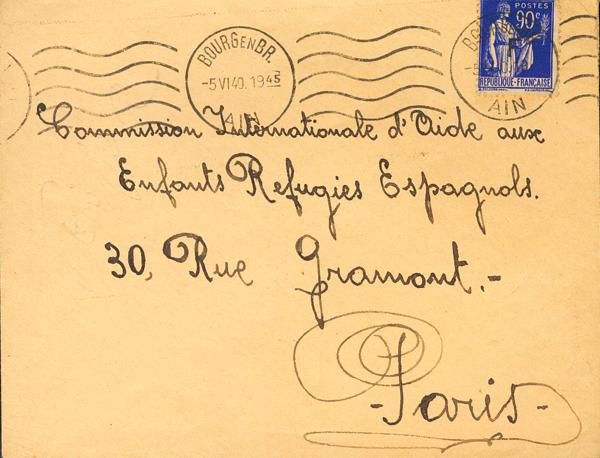 BOURG EN BR.
-5 VI 40. 19 45
AIN
POSTES
90c
REPUBLIQUE-FRANÇAISE
AIN
Commission Internationale d'Aide aux
Enfants Refugies Espagnols.
30, Rue Gramont.-
-Paris-